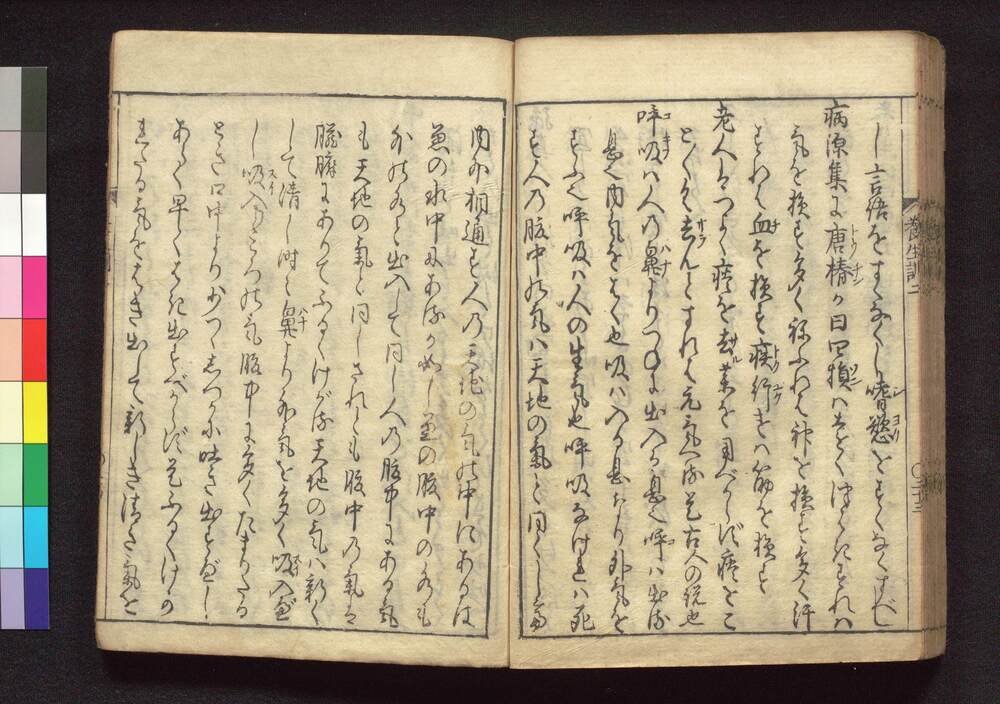 し言語をすくなくし嗜慾をすくなくすべし
病源集に唐椿か曰四損ハ遠くつはきすれハ
気を損す多くねふれは神を損す多く汗
すれは血を損す疾行すれハ筋を損す
老人はつよく痰を去薬を用べからず痰をこ
とことく去んとすれは元気へる是古人の説也
呼吸ハ人の鼻よりつねに出入る息也呼ハ出る
息也内気をはく也吸ハ入る息なり外気を
すふ也呼吸ハ人の生気也呼吸なけれハ死
す人の腹中の気ハ天地の氣と同くして
内外相通す人の天地の気の中にあるは
魚の水中にあるか如し魚の腹中の水も
外の水と出入して同し人の腹中にある気
も天地の気と同しされとも腹中の氣は
臓腑にありてふるくけがる天地の気ハ新く
して清し時々鼻より外気を多く吸入べ
し吸入ところの気腹中に多くたまりたる
とき口中より少つゝしつかに吐き出すべし
あらく早くはき出すべからず是ふるくけか
れたる気をはき出して新しき清き氣を
養生訓二